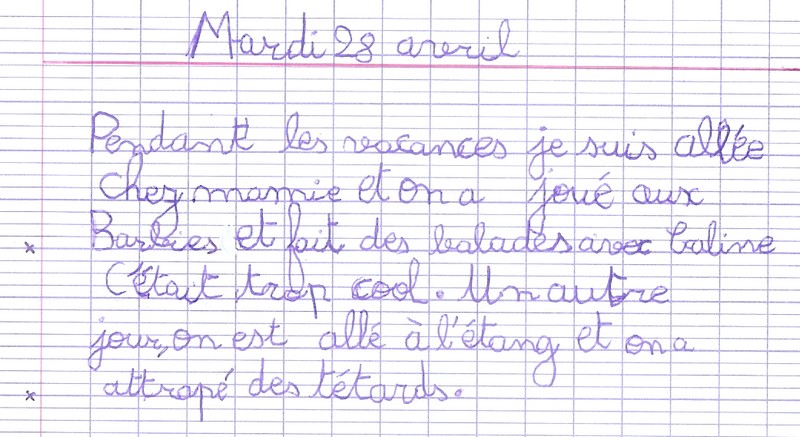 Mardi 28 avril
Pendant les vacances je suis allée
chez mamie et on a joué aux
Barbies et fait des balades avec Caline
C'était trop cool. Un autre
jour, on est allé à l'étang et on a
attrapé des têtards.